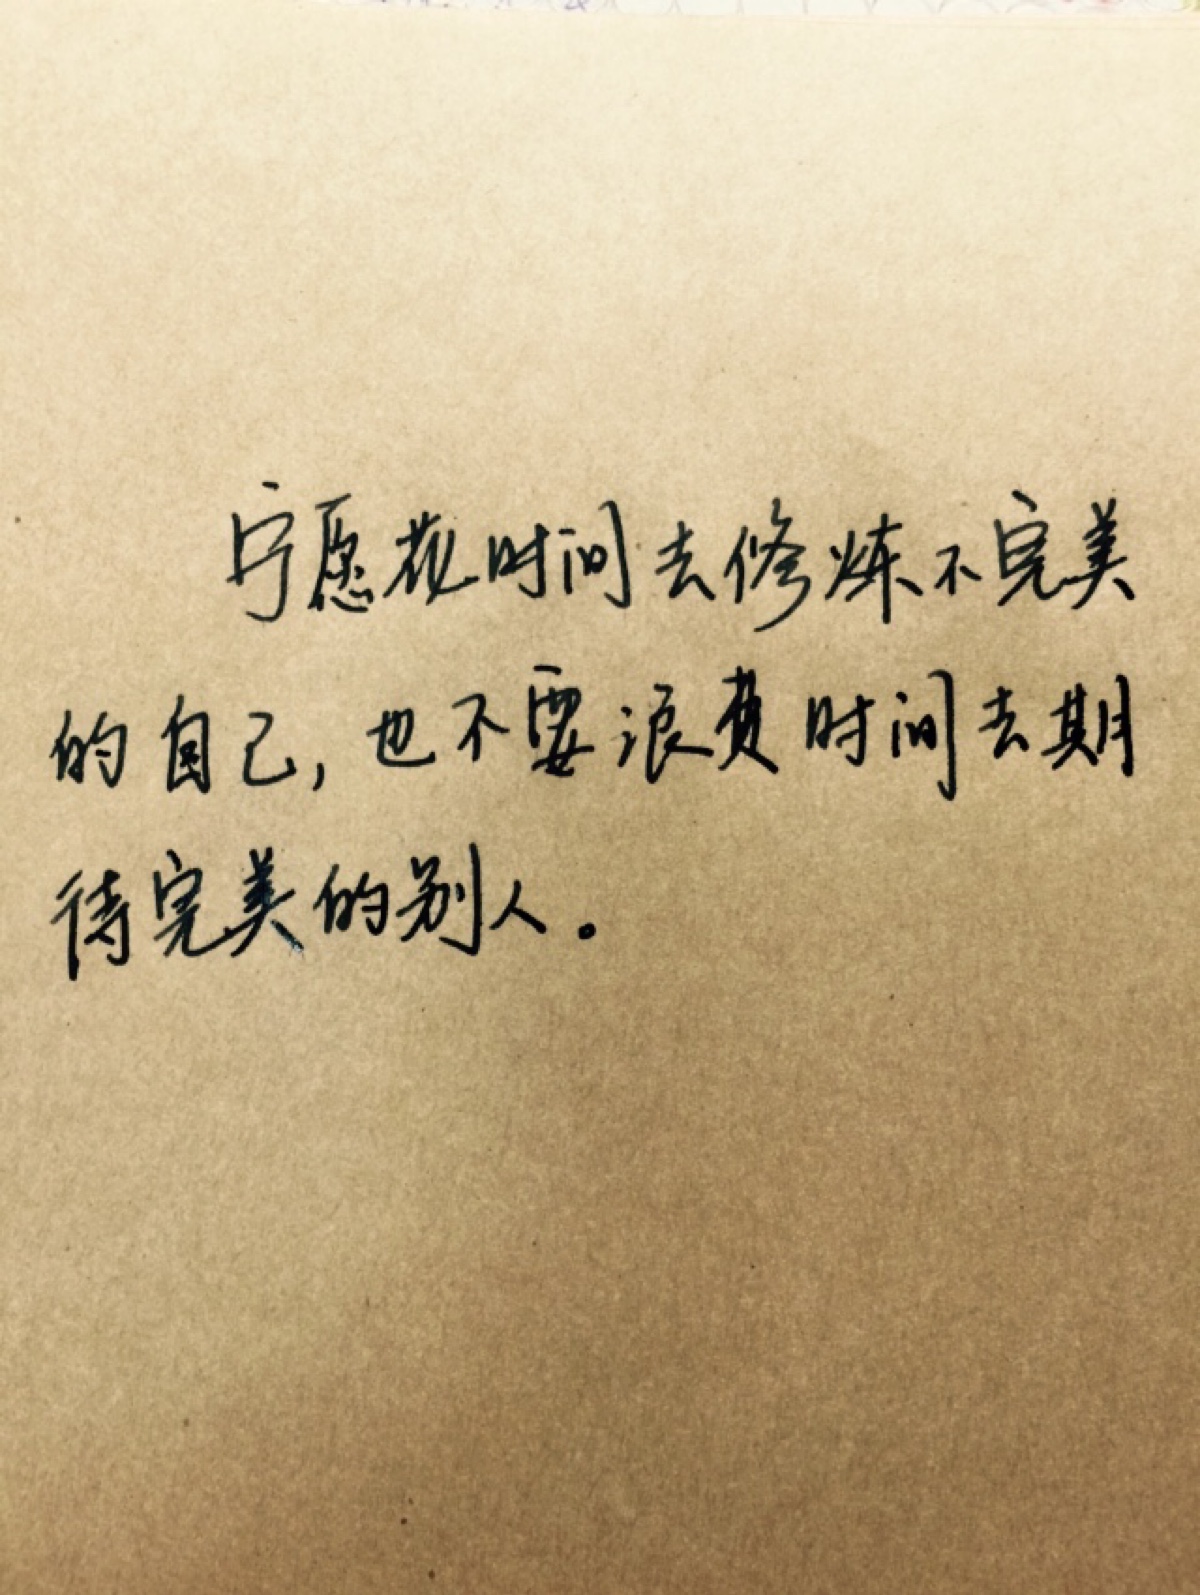 宁愿花时间去修炼不完美
的自己,也不要浪费时间去期
待完美的别人.